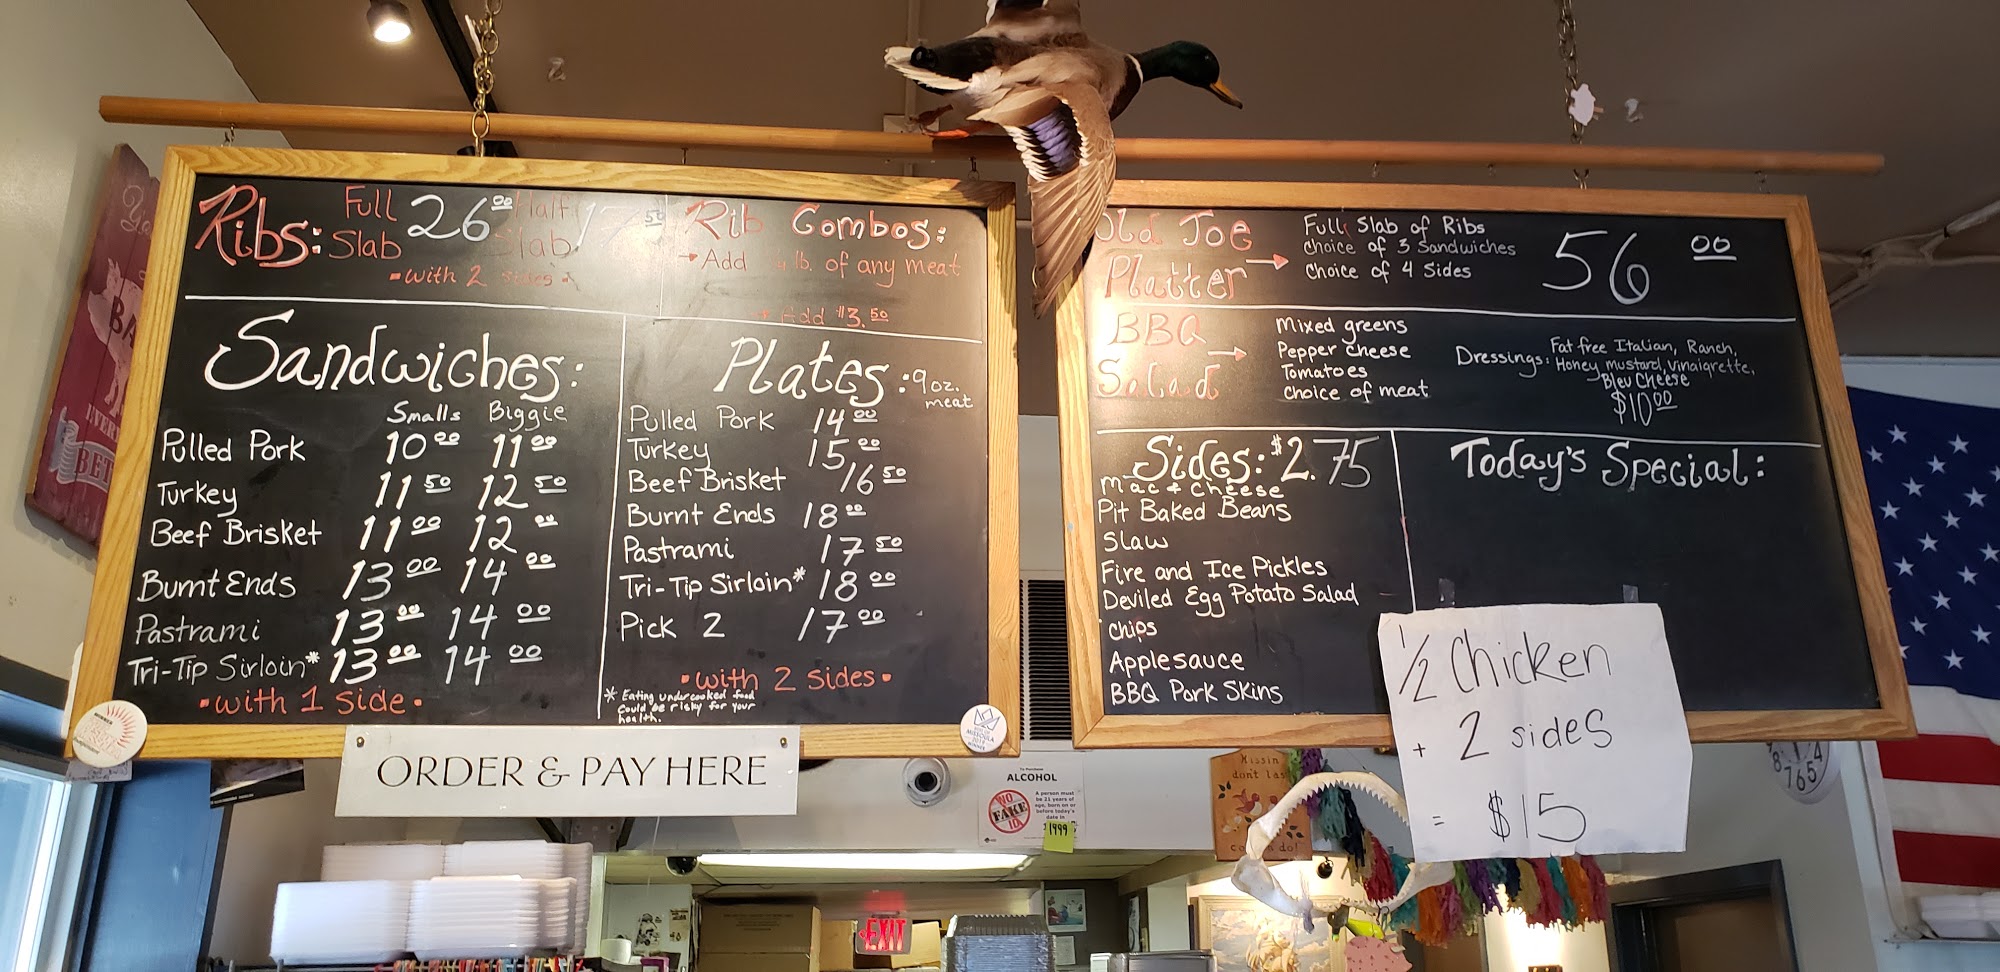 Ribs: Full Slab 26 00 Half Slab 17 50
•with 2 sides•
Rib Combos:
→Add lb. of any meat
Add $3.50
Sandwiches:
Smalls Biggie
Pulled Pork 10 00 11 00
Turkey 11 50 12 50
Beef Brisket 11 00 12 00
Burnt Ends 13 00 14 00
Pastrami 13 00 14 00
Tri-Tip Sirloin* 13 00 14 00
•with 1 side•
Plates: 9 oz. meat
Pulled Pork 14 00
Turkey 15 00
Beef Brisket 16 50
Burnt Ends 18 00
Pastrami 17 50
Tri-Tip Sirloin* 18 00
Pick 2 17 00
•with 2 sides•
* Eating undercooked food
could be risky for your
health.
ORDER & PAY HERE
Old Joe Platter →
Full Slab of Ribs
Choice of 3 Sandwiches
Choice of 4 Sides
56 00
BBQ Salad →
Mixed greens
Pepper cheese
Tomatoes
Choice of meat
Dressings: Fat free Italian, Ranch,
Honey mustard, Vinaigrette,
Bleu Cheese
$10 00
Sides: $2.75
Mac + Cheese
Pit Baked Beans
Slaw
Fire and Ice Pickles
Deviled Egg Potato Salad
Chips
Applesauce
BBQ Pork Skins
Today's Special:
1/2 Chicken
+ 2 sides
= $15
To Purchase
ALCOHOL
NO FAKE ID
A person must
be 21 years of
age, born on or
before today's
date in
1999
Kissin
don't las
do!
EXIT
8 7 6 5
BET
MISSOULA
WINNER